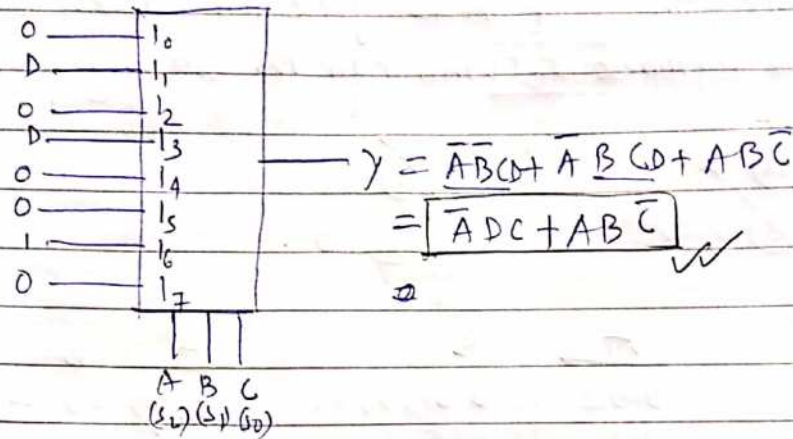 0 I₀
D I₁
0 I₂
D I₃
0 I₄
0 I₅
1 I₆
0 I₇
Y = A̅B̅CD + A̅BCD + ABC̅
= A̅DC + ABC̅
A B C
(S₂) (S₁) (S₀)